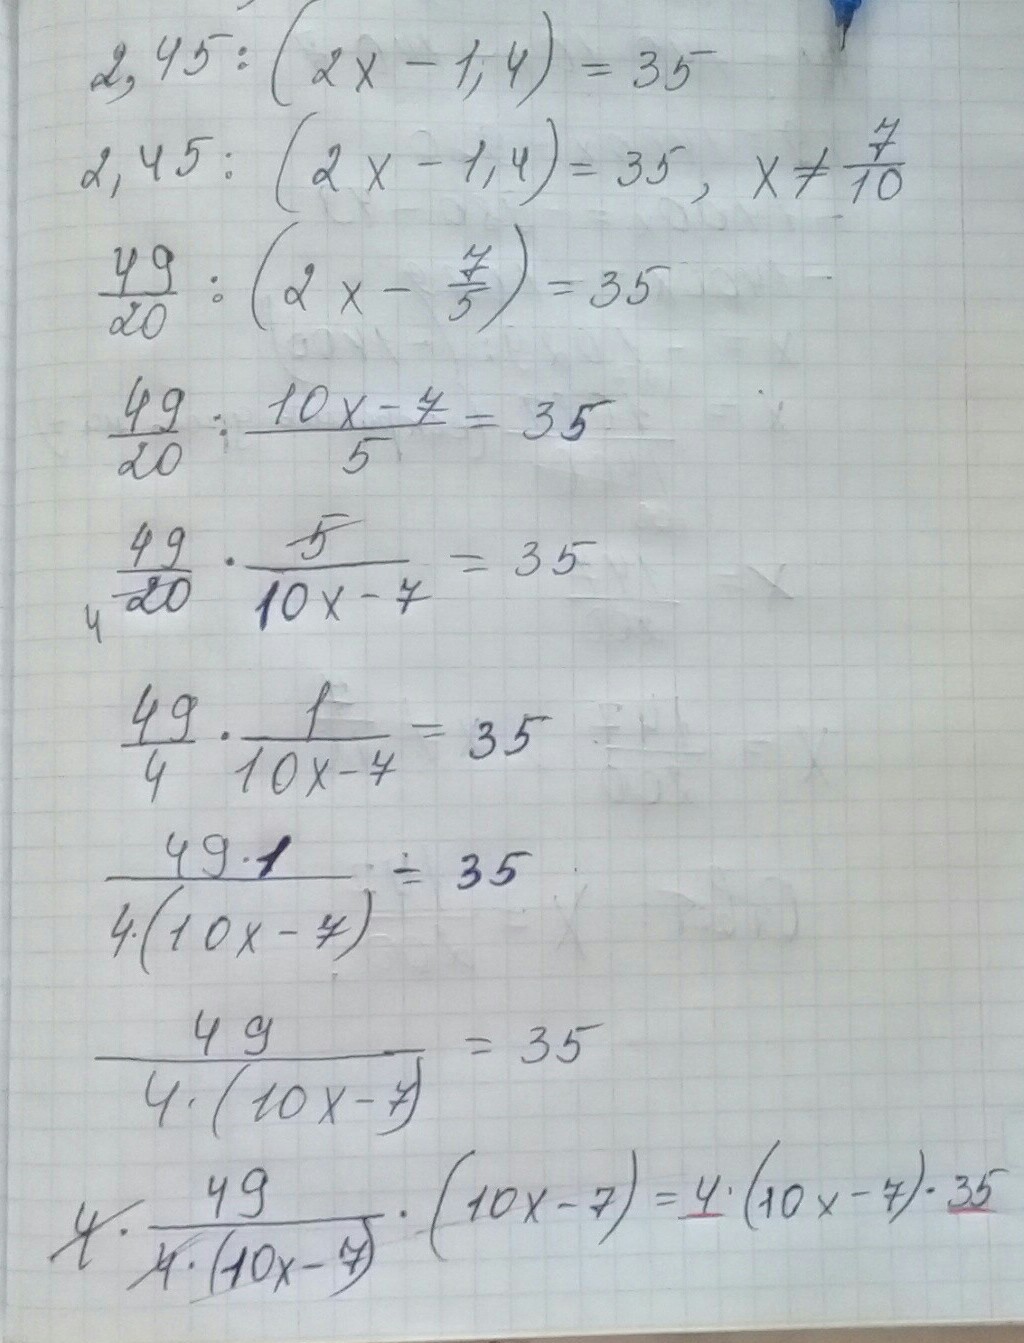 2,45 : (2x - 1,4) = 35
2,45 : (2x - 1,4) = 35, x ≠ 7/10
49/20 : (2x - 7/5) = 35
49/20 : (10x - 7)/5 = 35
49/20 · 5/(10x - 7) = 35
4
49/4 · 1/(10x - 7) = 35
(49 · 1)/(4 · (10x - 7)) = 35
49/(4 · (10x - 7)) = 35
4 · 49/(4 · (10x - 7)) · (10x - 7) = 4 · (10x - 7) · 35